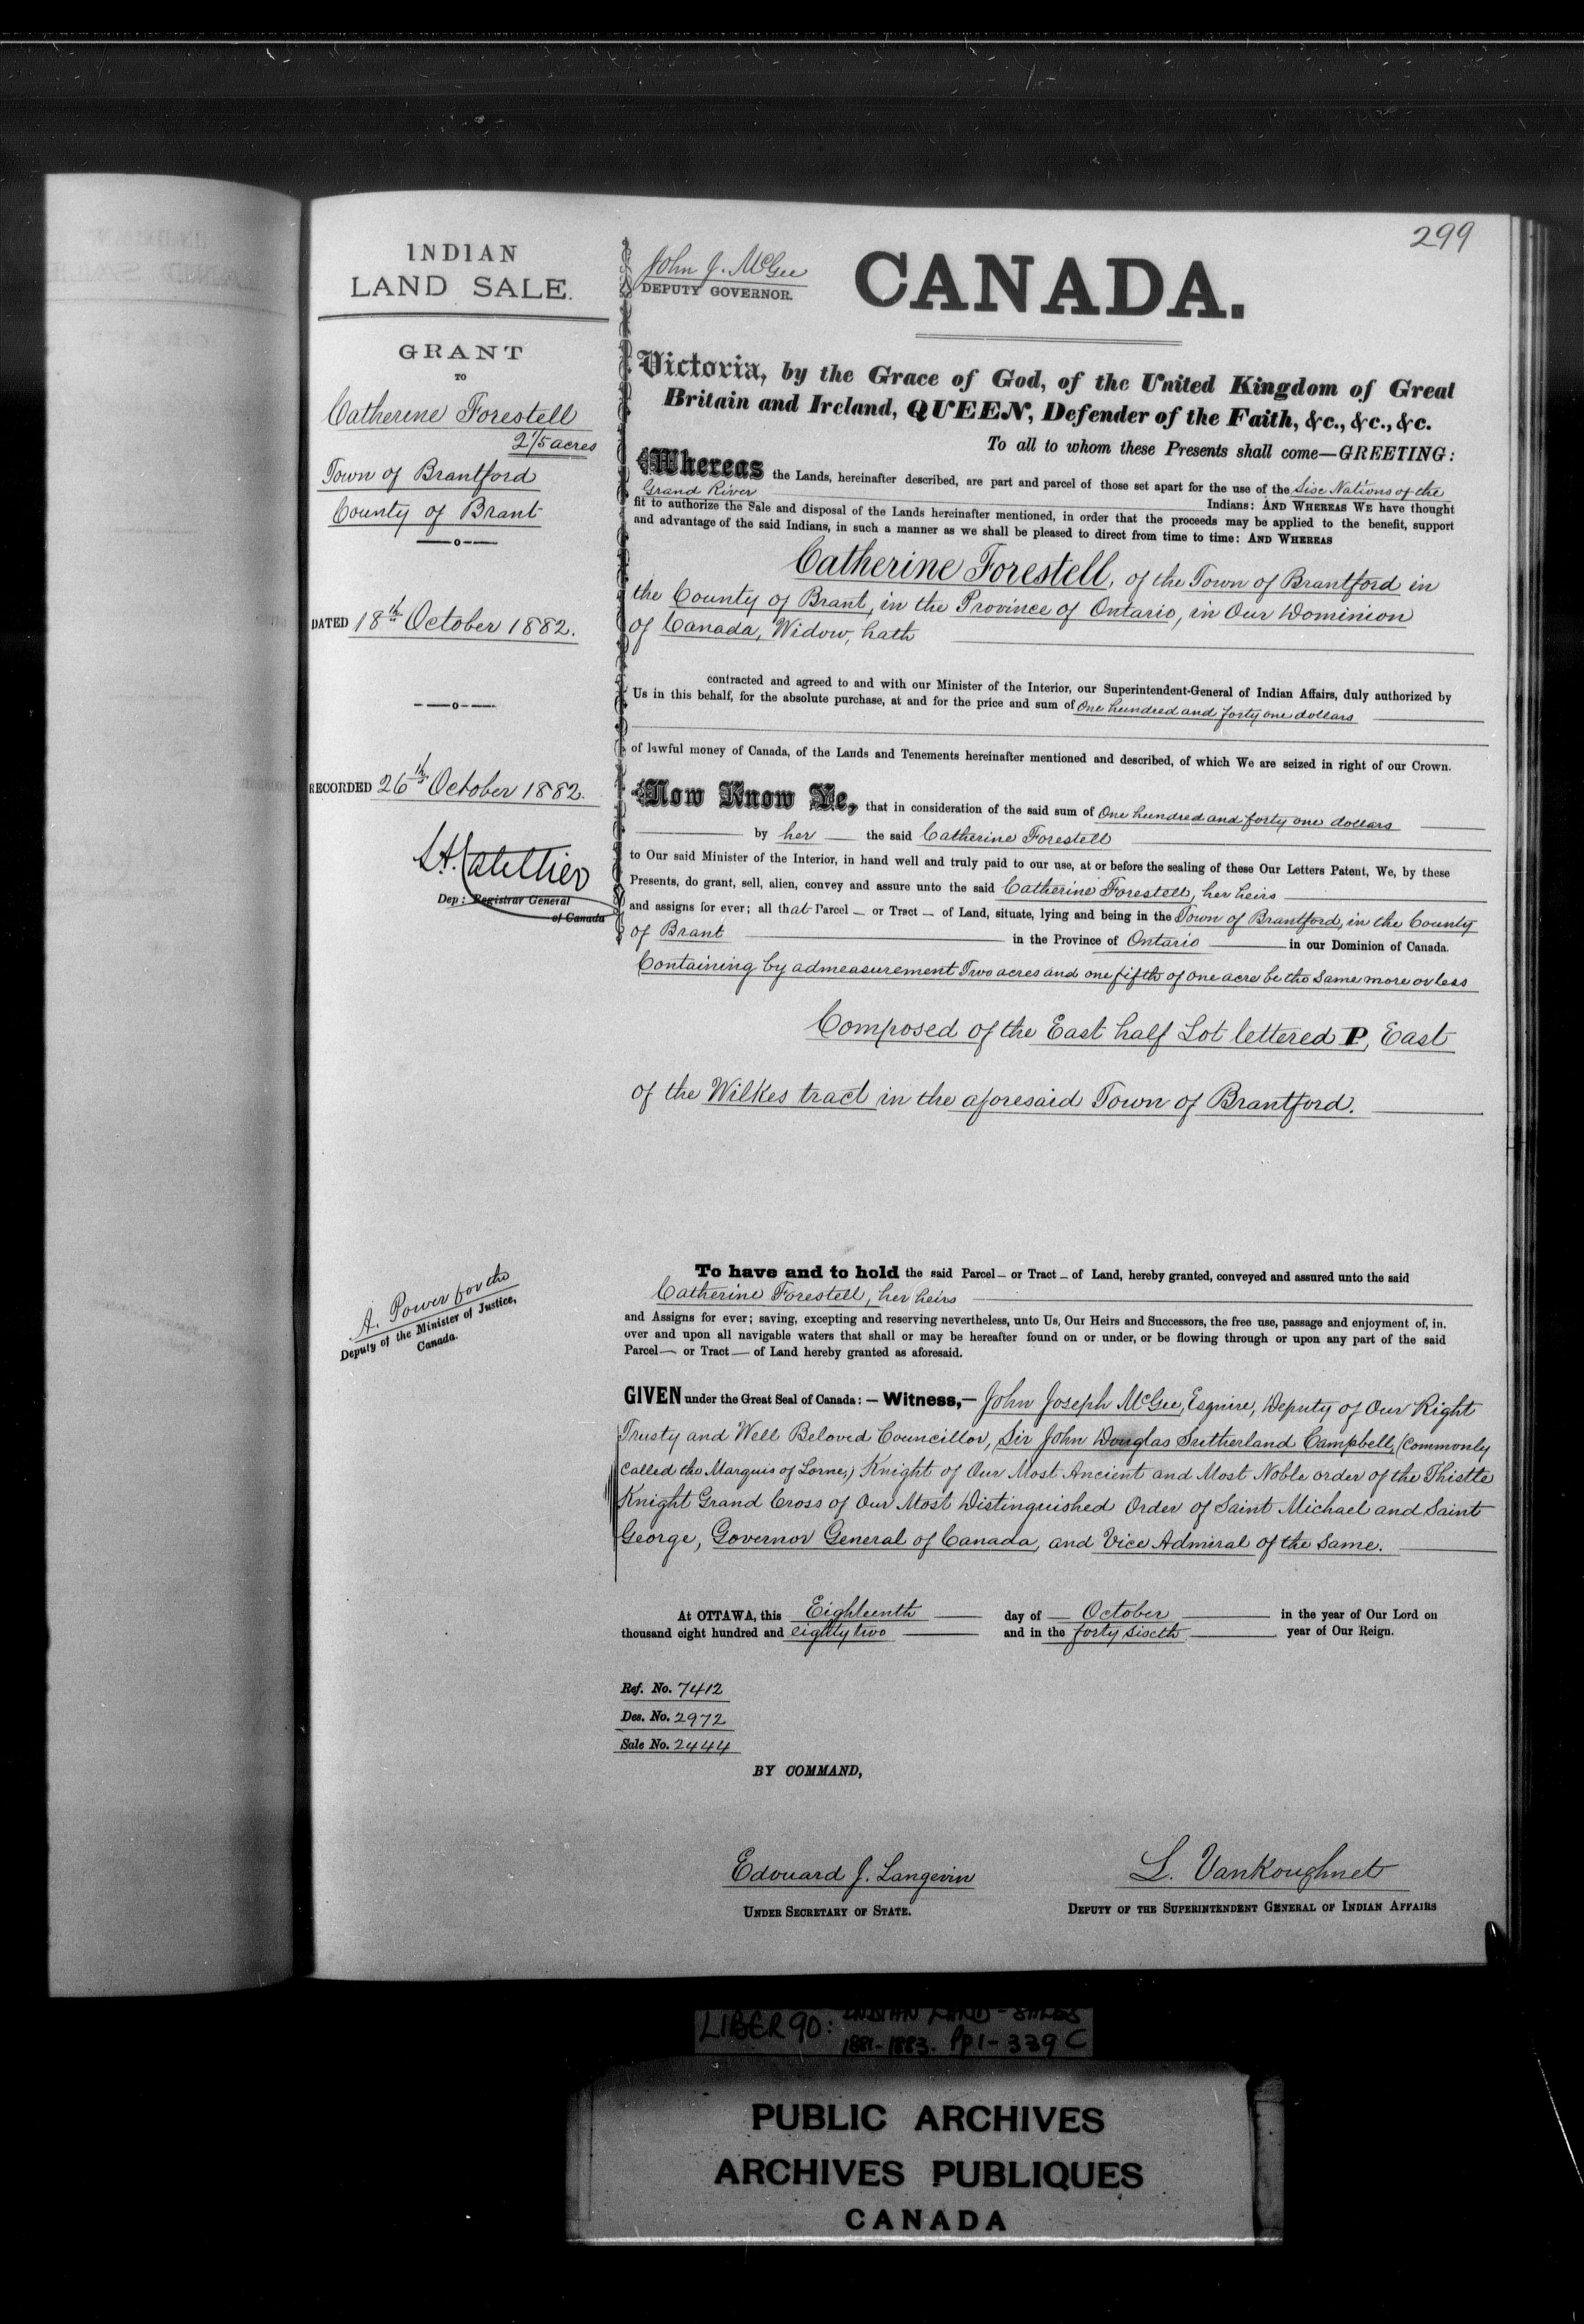 299
INDIAN
LAND SALE.
GRANT
TO
Catherine Forestell
2 1/5 acres
Town of Brantford
County of Brant
DATED 18th October 1882.
RECORDED 26th October 1882.
Dep: Registrar General
of Canada
A. Power for the
Deputy of the Minister of Justice,
Canada.
John J. McGee
DEPUTY GOVERNOR.
CANADA.
Victoria, by the Grace of God, of the United Kingdom of Great
Britain and Ireland, QUEEN, Defender of the Faith, &c., &c., &c.
To all to whom these Presents shall come—GREETING:
Whereas the Lands, hereinafter described, are part and parcel of those set apart for the use of the Six Nations of the
Grand River Indians: AND WHEREAS WE have thought
fit to authorize the Sale and disposal of the Lands hereinafter mentioned, in order that the proceeds may be applied to the benefit, support
and advantage of the said Indians, in such a manner as we shall be pleased to direct from time to time: AND WHEREAS
Catherine Forestell, of the Town of Brantford in
the County of Brant, in the Province of Ontario, in Our Dominion
of Canada, Widow, hath
contracted and agreed to and with our Minister of the Interior, our Superintendent-General of Indian Affairs, duly authorized by
Us in this behalf, for the absolute purchase, at and for the price and sum of One hundred and forty one dollars
of lawful money of Canada, of the Lands and Tenements hereinafter mentioned and described, of which We are seized in right of our Crown.
Now Know Ye, that in consideration of the said sum of One hundred and forty one dollars
by her the said Catherine Forestell
to Our said Minister of the Interior, in hand well and truly paid to our use, at or before the sealing of these Our Letters Patent, We, by these
Presents, do grant, sell, alien, convey and assure unto the said Catherine Forestell, her heirs
and assigns for ever; all that Parcel — or Tract — of Land, situate, lying and being in the Town of Brantford, in the County
of Brant in the Province of Ontario in our Dominion of Canada.
Containing by admeasurement Two acres and one fifth of one acre be the same more or less
Composed of the East half Lot lettered P, East
of the Wilkes tract in the aforesaid Town of Brantford.
To have and to hold the said Parcel — or Tract — of Land, hereby granted, conveyed and assured unto the said
Catherine Forestell, her heirs
and Assigns for ever; saving, excepting and reserving nevertheless, unto Us, Our Heirs and Successors, the free use, passage and enjoyment of, in,
over and upon all navigable waters that shall or may be hereafter found on or under, or be flowing through or upon any part of the said
Parcel — or Tract — of Land hereby granted as aforesaid.
GIVEN under the Great Seal of Canada: — Witness,— John Joseph McGee, Esquire, Deputy of Our Right
Trusty and Well Beloved Councillor, Sir John Douglas Sutherland Campbell, (commonly
called the Marquis of Lorne,) Knight of Our Most Ancient and Most Noble order of the Thistle
Knight Grand Cross of Our Most Distinguished Order of Saint Michael and Saint
George, Governor General of Canada, and Vice Admiral of the same.
At OTTAWA, this Eighteenth day of October in the year of Our Lord on
thousand eight hundred and eighty two and in the forty sixth year of Our Reign.
Ref. No. 7412
Des. No. 2972
Sale No. 2444
BY COMMAND,
Edouard J. Langevin
UNDER SECRETARY OF STATE.
L. VanKoughnet
DEPUTY OF THE SUPERINTENDENT GENERAL OF INDIAN AFFAIRS
LIBER 90: INDIAN LAND - SALES
1881-1883. Pp 1-339 C
PUBLIC ARCHIVES
ARCHIVES PUBLIQUES
CANADA